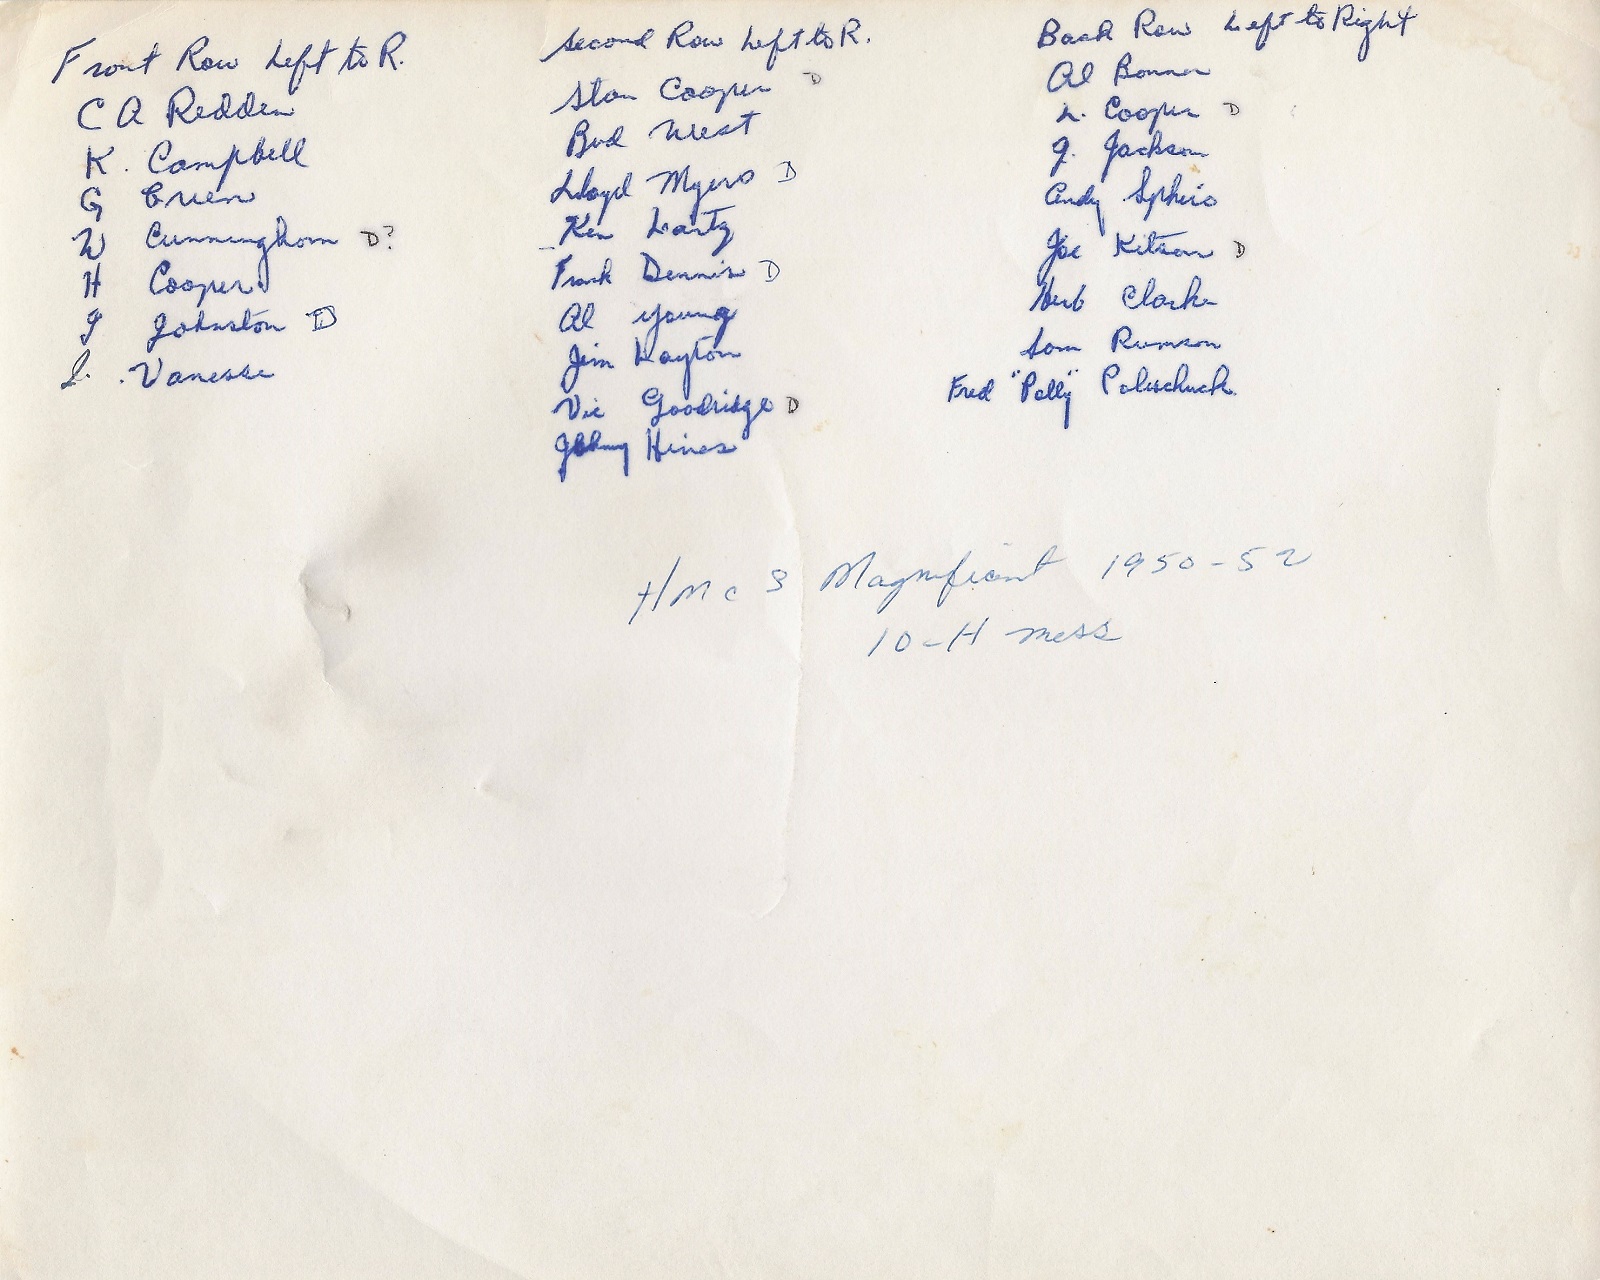 Front Row Left to R.
C A Redden
K. Campbell
G Green
W Cunningham D?
H Cooper
J Johnston D
Vanesse
Second Row Left to R.
Stan Cooper D
Bud West
Lloyd Myers D
Ken Lartz
Frank Dennis D
Al Young
Jim Layton
Vic Goodridge D
Johnny Hines
Back Row Left to Right
Al Bonner
L. Cooper D
J. Jackson
Andy Sphiro
Joe Kitson D
Herb Clarke
Sam Rumson
Fred "Polly" Poluschuck.
HMCS Magnificent 1950-52
10-H mess